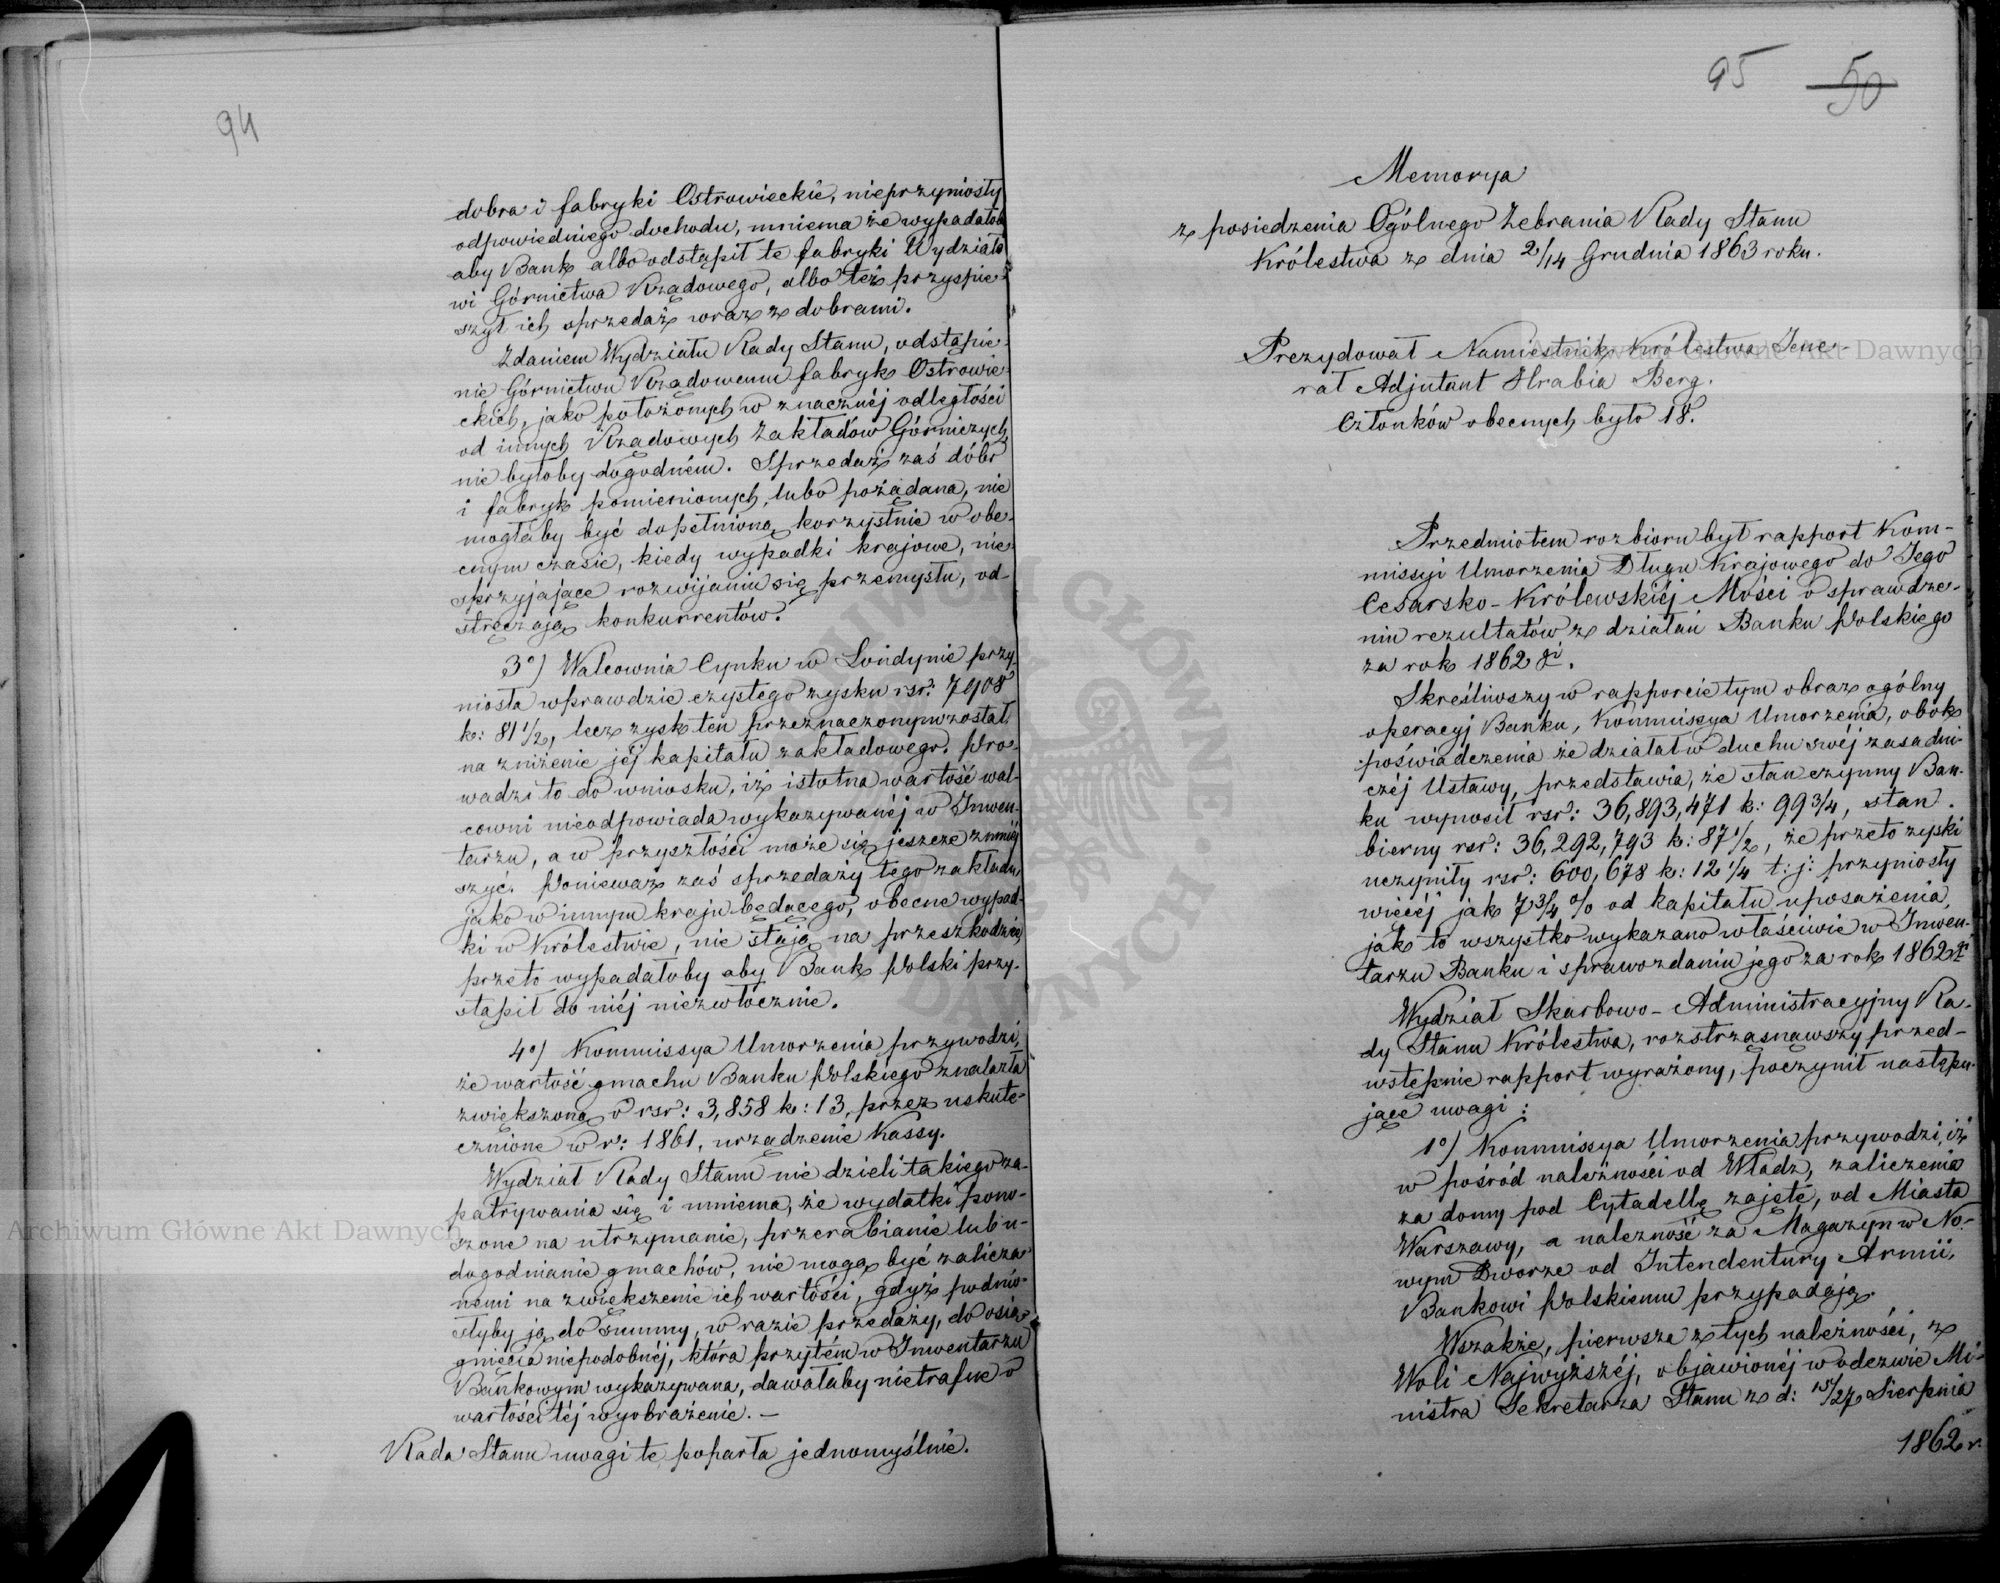 94
dobra i fabryki Ostrowieckie, nieprzyniosły
odpowiedniego dochodu, mniema że wypadałoby
aby Bank albo odstąpił te fabryki Wydziało-
wi Górnictwa Rządowego, albo też przyspie-
szył ich sprzedaż wraz z dobrami.
Zdaniem Wydziału Rady Stanu, odstąpie-
nie Górnictwu Rządowemu fabryk Ostrowie-
ckich, jako położonych w znacznéj odległości
od innych Rządowych Zakładów Górniczych,
nie byłoby dogodném. Sprzedaż zaś dóbr
i fabryk pomienionych, lubo pożądana, nie
mogłaby być dopełnioną korzystnie w obe-
cnym czasie, kiedy wypadki krajowe, nie
sprzyjające rozwijaniu się przemysłu, od-
stręczają konkurrentów.
3º) Walcownia Cynku w Londynie przy-
niosła wprawdzie czystego zysku rsr: 7908
k: 81 1/2, lecz zysk ten przeznaczonym został
na zniżenie jéj kapitału zakładowego. Pro-
wadzi to do wniosku, iż istotna wartość wal-
cowni nieodpowiada wykazywanéj w Inwen-
tarzu, a w przyszłości może się jeszcze zmniéj
szyć. Ponieważ zaś sprzedaży tego zakładu,
jako w innym kraju będącego, obecne wypad-
ki w Królestwie, nie stają na przeszkodzie,
przeto wypadałoby aby Bank Polski przy-
stąpił do niéj niezwłocznie.
4º) Kommissya Umorzenia przywodzi,
że wartość gmachu Banku Polskiego znalazła
zwiększoną o rsr: 3,858 k: 13, przez uskute-
cznione w r: 1861, urządzenie Kassy.
Wydział Rady Stanu nie dzieli takiego za-
patrywania się i mniema, że wydatki pono-
szone na utrzymanie, przerabianie lub u-
dogodnianie gmachów, nie mogą być zalicza-
nemi na zwiększenie ich wartości, gdyż podnio-
słyby ją do summy, w razie przedaży, do osią-
gnięcia niepodobnéj, która przytém w Inwentarzu
Bankowym wykazywana, dawałaby nietrafne o
wartości téj wyobrażenie. —
Rada Stanu uwagi te poparła jednomyślnie.
95 50
Memorya
z posiedzenia Ogólnego Zebrania Rady Stanu
Królestwa z dnia 2/14 Grudnia 1863 roku.
Prezydował Namiestnik Królestwa, Jene-
rał Adjutant Hrabia Berg.
Członków obecnych było 18.
Przedmiotem rozbioru był rapport Kom-
missyi Umorzenia Długu Krajowego do Jego
Cesarsko-Królewskiéj Mości o sprawdze-
niu rezultatów z działań Banku Polskiego
za rok 1862gi.
Skreśliwszy w rapporcie tym obraz ogólny
operacyj Banku, Kommissya Umorzenia, obok
poświadczenia że działał w duchu swéj zasadni-
czéj Ustawy, przedstawia, że stan czynny Ban-
ku wynosił rsr: 36,893,471 k: 99 3/4, stan
bierny rsr: 36,292,793 k: 87 1/2, że przeto zyski
uczyniły rsr: 600,678 k: 12 1/4 t: j: przyniosły
więcéj jak 7 3/4 % od kapitału uposażenia,
jak to wszystko wykazano właściwie w Inwen-
tarzu Banku i sprawozdaniu jego za rok 1862gi
Wydział Skarbowo-Administracyjny Ra-
dy Stanu Królestwa, roztrząsnawszy przed-
wstępnie rapport wyrażony, poczynił następu-
jące uwagi:
1º) Kommissya Umorzenia przywodzi, iż
w pośród należności od Władz, zaliczenia
za domy pod Cytadellę zajęte, od Miasta
Warszawy, a należność za Magazyn w No-
wym Dworze od Intendentury Armii,
Bankowi Polskiemu przypadają.
Wszakże, pierwsza z tych należności, z
Woli Najwyższéj, objawionéj w odezwie Mi-
nistra Sekretarza Stanu z d: 15/27 Sierpnia
1862 r.
Archiwum Główne Akt Dawnych
Archiwum Główne Akt Dawnych
ARCHIWUM GŁÓWNE AKT DAWNYCH